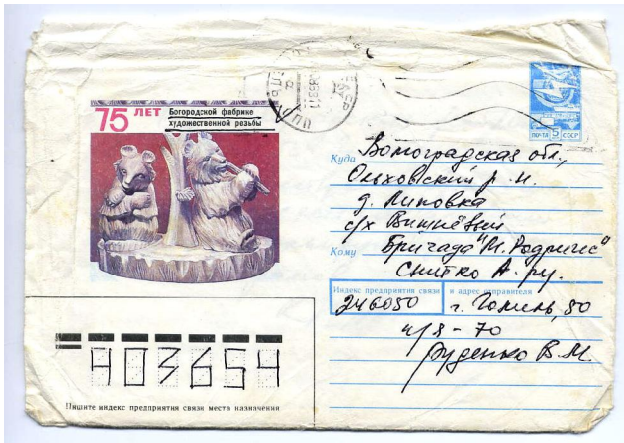 75 ЛЕТ
Богородской фабрике
художественной резьбы
ПОЧТА 5 СССР
Куда Волгоградская обл.,
Ольховский р-н.
д. Липовка
с/х Вишнёвый
Кому Бригада "М. Родригес"
Снитко А.
Индекс предприятия связи и адрес отправителя
246050 г. Гомель, 50
а/я - 70
Руденко В.М.
403654
Пишите индекс предприятия связи места назначения